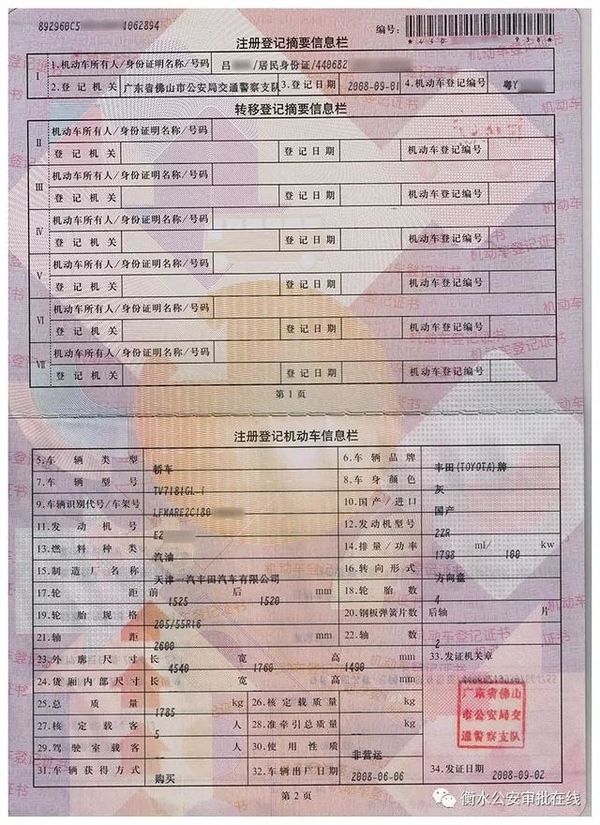 892960C5 1062894 编号:
*440 938*
注册登记摘要信息栏
I 1.机动车所有人/身份证明名称/号码 吕 /居民身份证/440682
2.登记机关 广东省佛山市公安局交通警察支队 3.登记日期 2008-09-01 4.机动车登记编号 粤Y
转移登记摘要信息栏
II 机动车所有人/身份证明名称/号码
登记机关 登记日期 机动车登记编号
III 机动车所有人/身份证明名称/号码
登记机关 登记日期 机动车登记编号
IV 机动车所有人/身份证明名称/号码
登记机关 登记日期 机动车登记编号
V 机动车所有人/身份证明名称/号码
登记机关 登记日期 机动车登记编号
VI 机动车所有人/身份证明名称/号码
登记机关 登记日期 机动车登记编号
VII 机动车所有人/身份证明名称/号码
登记机关 登记日期 机动车登记编号
第1页
注册登记机动车信息栏
5.车辆类型 轿车 6.车辆品牌 丰田(TOYOTA)牌
7.车辆型号 TV7181GL-i 8.车身颜色 灰
9.车辆识别代号/车架号 LFMARE2C180 10.国产/进口 国产
11.发动机号 E2 12.发动机型号 2ZR
13.燃料种类 汽油 14.排量/功率 1798 ml/ 100 kw
15.制造厂名称 天津一汽丰田汽车有限公司 16.转向形式 方向盘
17.轮距 前 1525 后 1520 mm 18.轮胎数 4
19.轮胎规格 205/55R16 20.钢板弹簧片数 后轴 片
21.轴距 2600 mm 22.轴数 2
23.外廓尺寸 长 4540 宽 1760 高 1490 mm 33.发证机关章
24.货厢内部尺寸 长 宽 高 mm
25.总质量 1785 kg 26.核定载质量 kg
27.核定载客 5 人 28.准牵引总质量 kg
29.驾驶室载客 人 30.使用性质 非营运
31.车辆获得方式 购买 32.车辆出厂日期 2008-06-06 34.发证日期 2008-09-02
广东省佛山
市公安局交
通警察支队
第2页
衡水公安审批在线